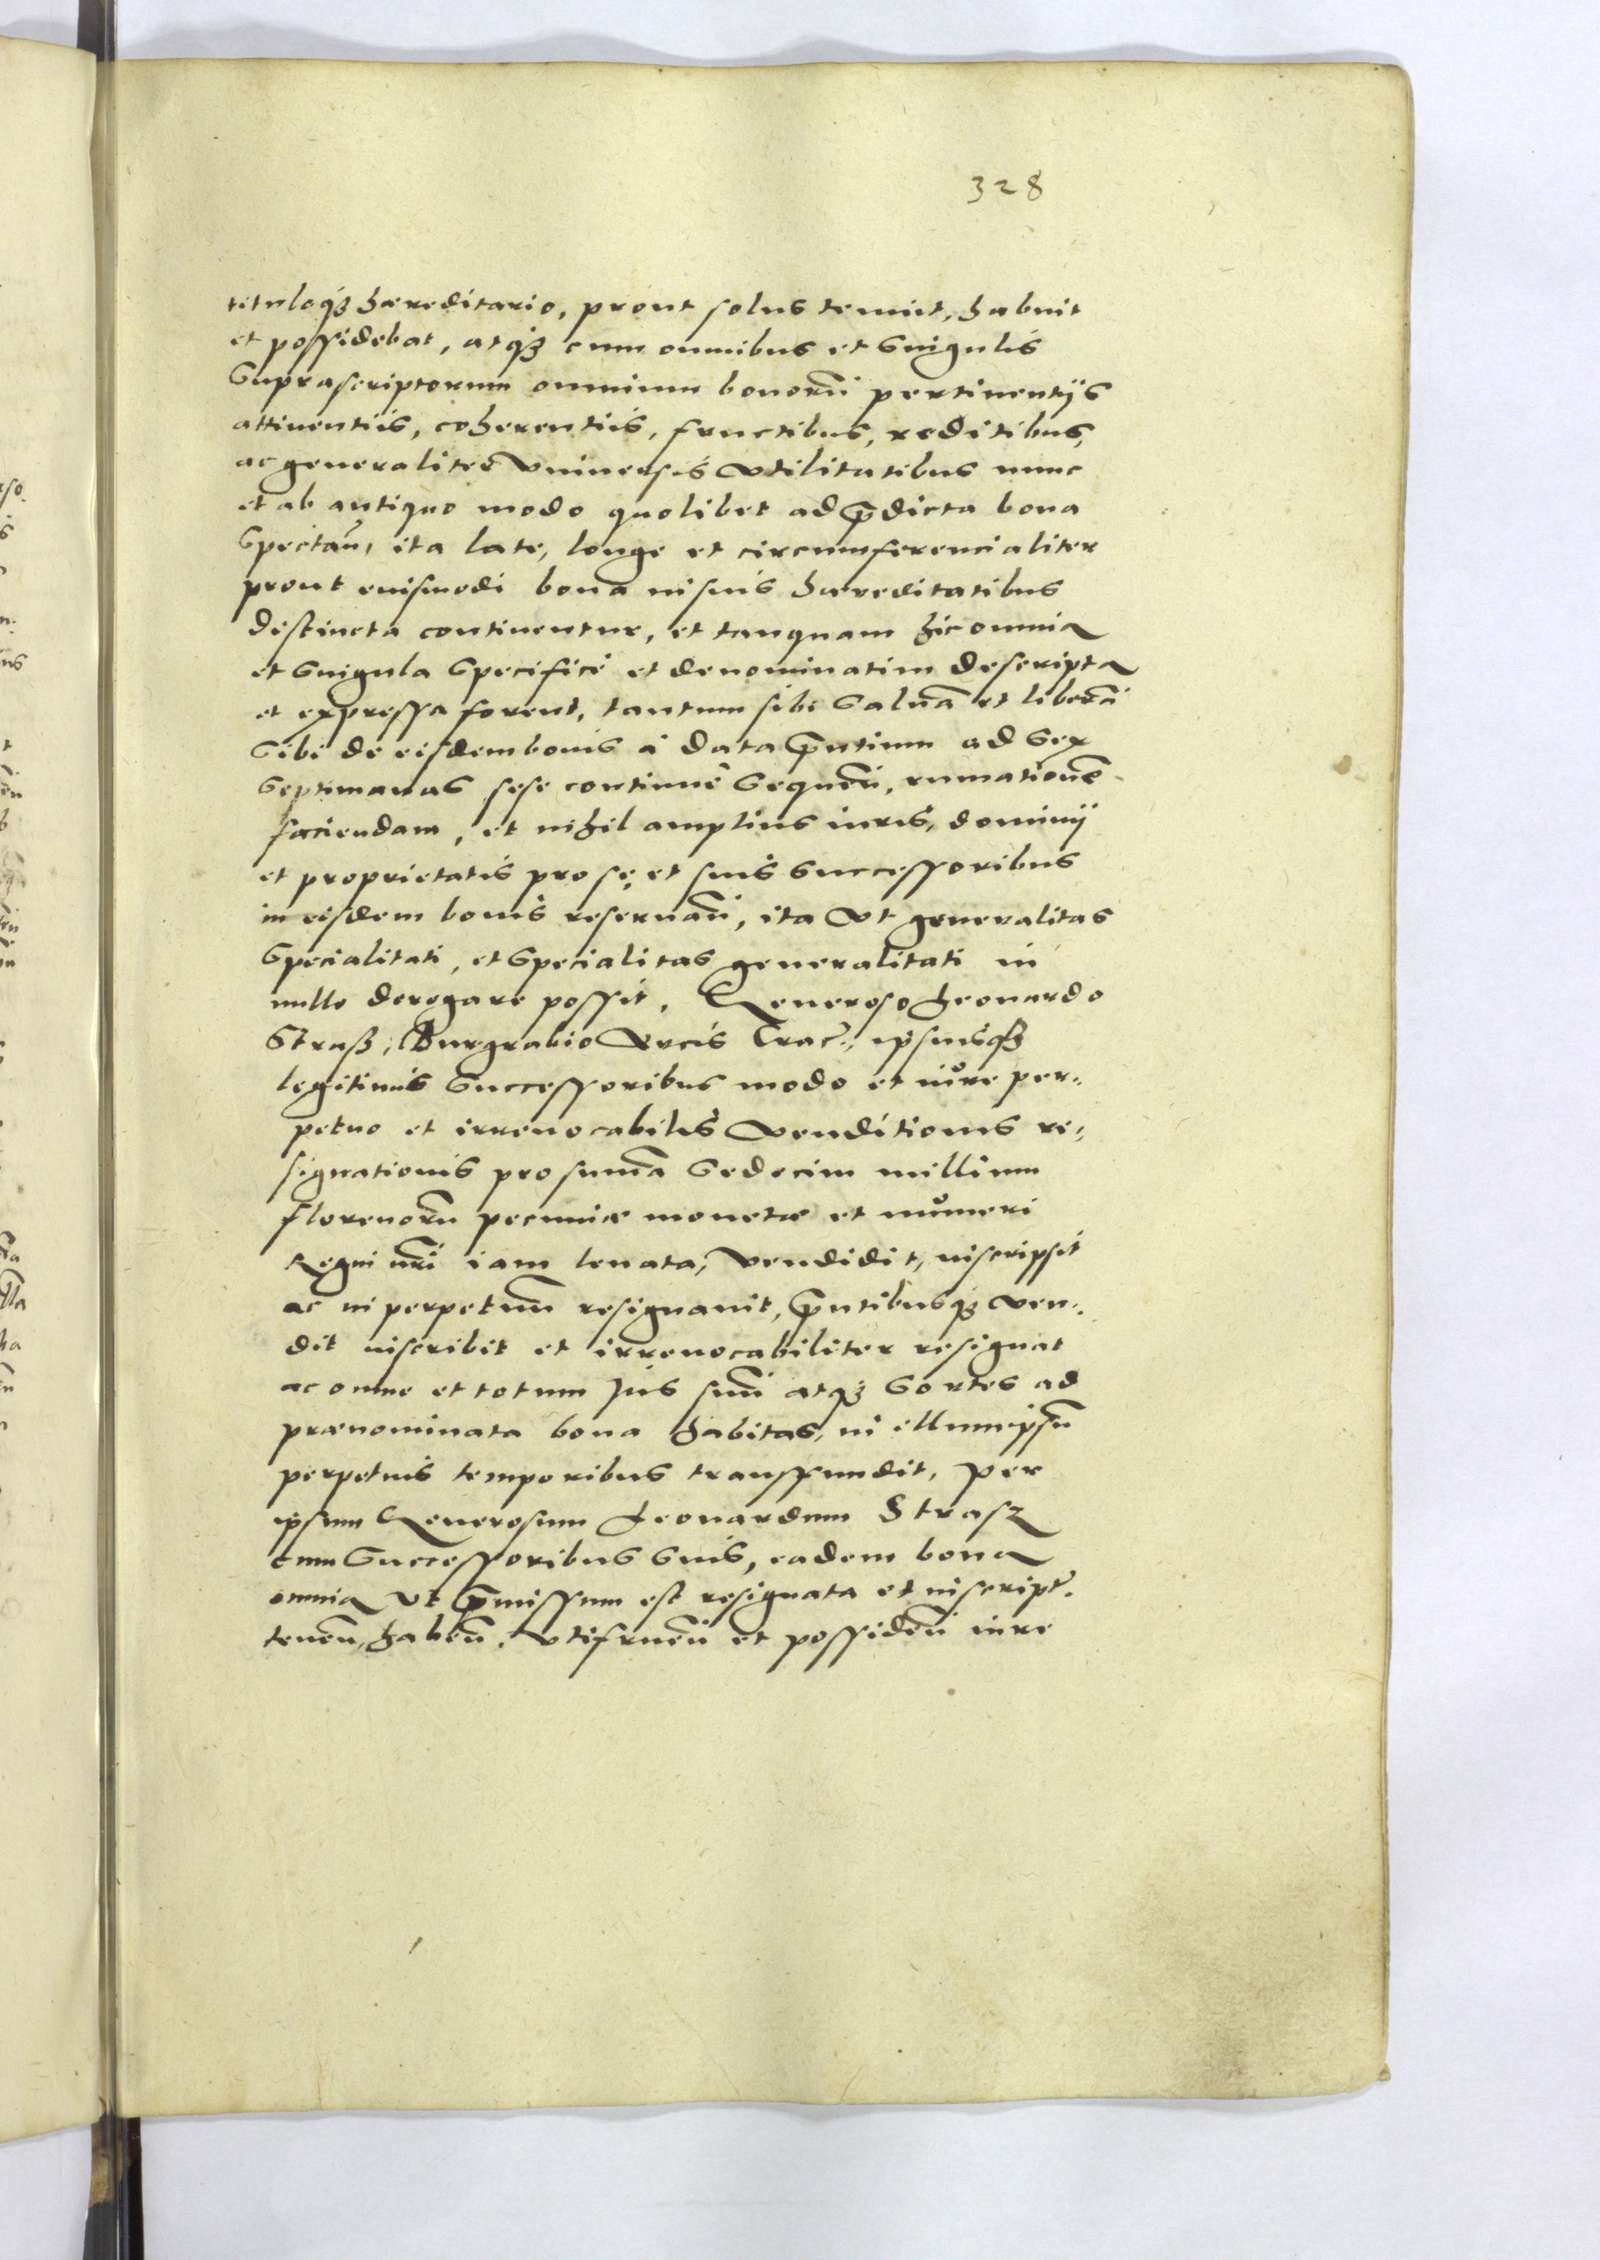 328
tituloq₃ hæreditario, prout solus tenuit, habuit
et possidebat, atq₃ cum omnibus et singulis
suprascriptorum omnium bonorū pertinentijs
attinentiis, coherentiis, fructibus, reditibus,
ac generaliter vniuersis vtilitatibus nunc
et ab antiquo modo quolibet ad p̄dicta bona
spectañ, ita late, longe et circumferencialiter
prout eiusmodi bona in suis hæreditatibus
distincta continentur, et tanquam hic omnia
et singula specifice et denominatim descripta
et expressa forent, tantum sibi saluā et liberā
sibi de eisdem bonis à data p̄ntium ad sex
septimanas sese continuè sequeñ, rumationē
faciendam, et nihil amplius iuris, dominij
et proprietatis pro se, et suis successoribus
in eisdem bonis reseruañ, ita vt generalitas
specialitati, et specialitas generalitati in
nullo derogare possit. Generoso Leonardo
Straß, Burgrabio Arcis Crac̄., ipsiusq₃
legitimis successoribus modo et iure per-
petuo et irreuocabilis venditionis re-
signationis pro summa sedecim millium
florenorū pecuniæ monetæ et numeri
Regni nr̄i iam leuata, vendidit, inscripsit
ac in perpetuum resignauit, p̄ntibusq₃ ven-
dit inscribit et irreuocabiliter resignat
ac omne et totum Jus suū atq₃ sortes ad
prænominata bona habitas, in illum ipsū
perpetuis temporibus transfundit, per
ipsum Generosum Leonardum Strasz
cum successoribus suis, eadem bona
omnia vt p̄missum est resignata et inscript̄.
teneñ, habeñ, vtifrueñ et possideñ iure